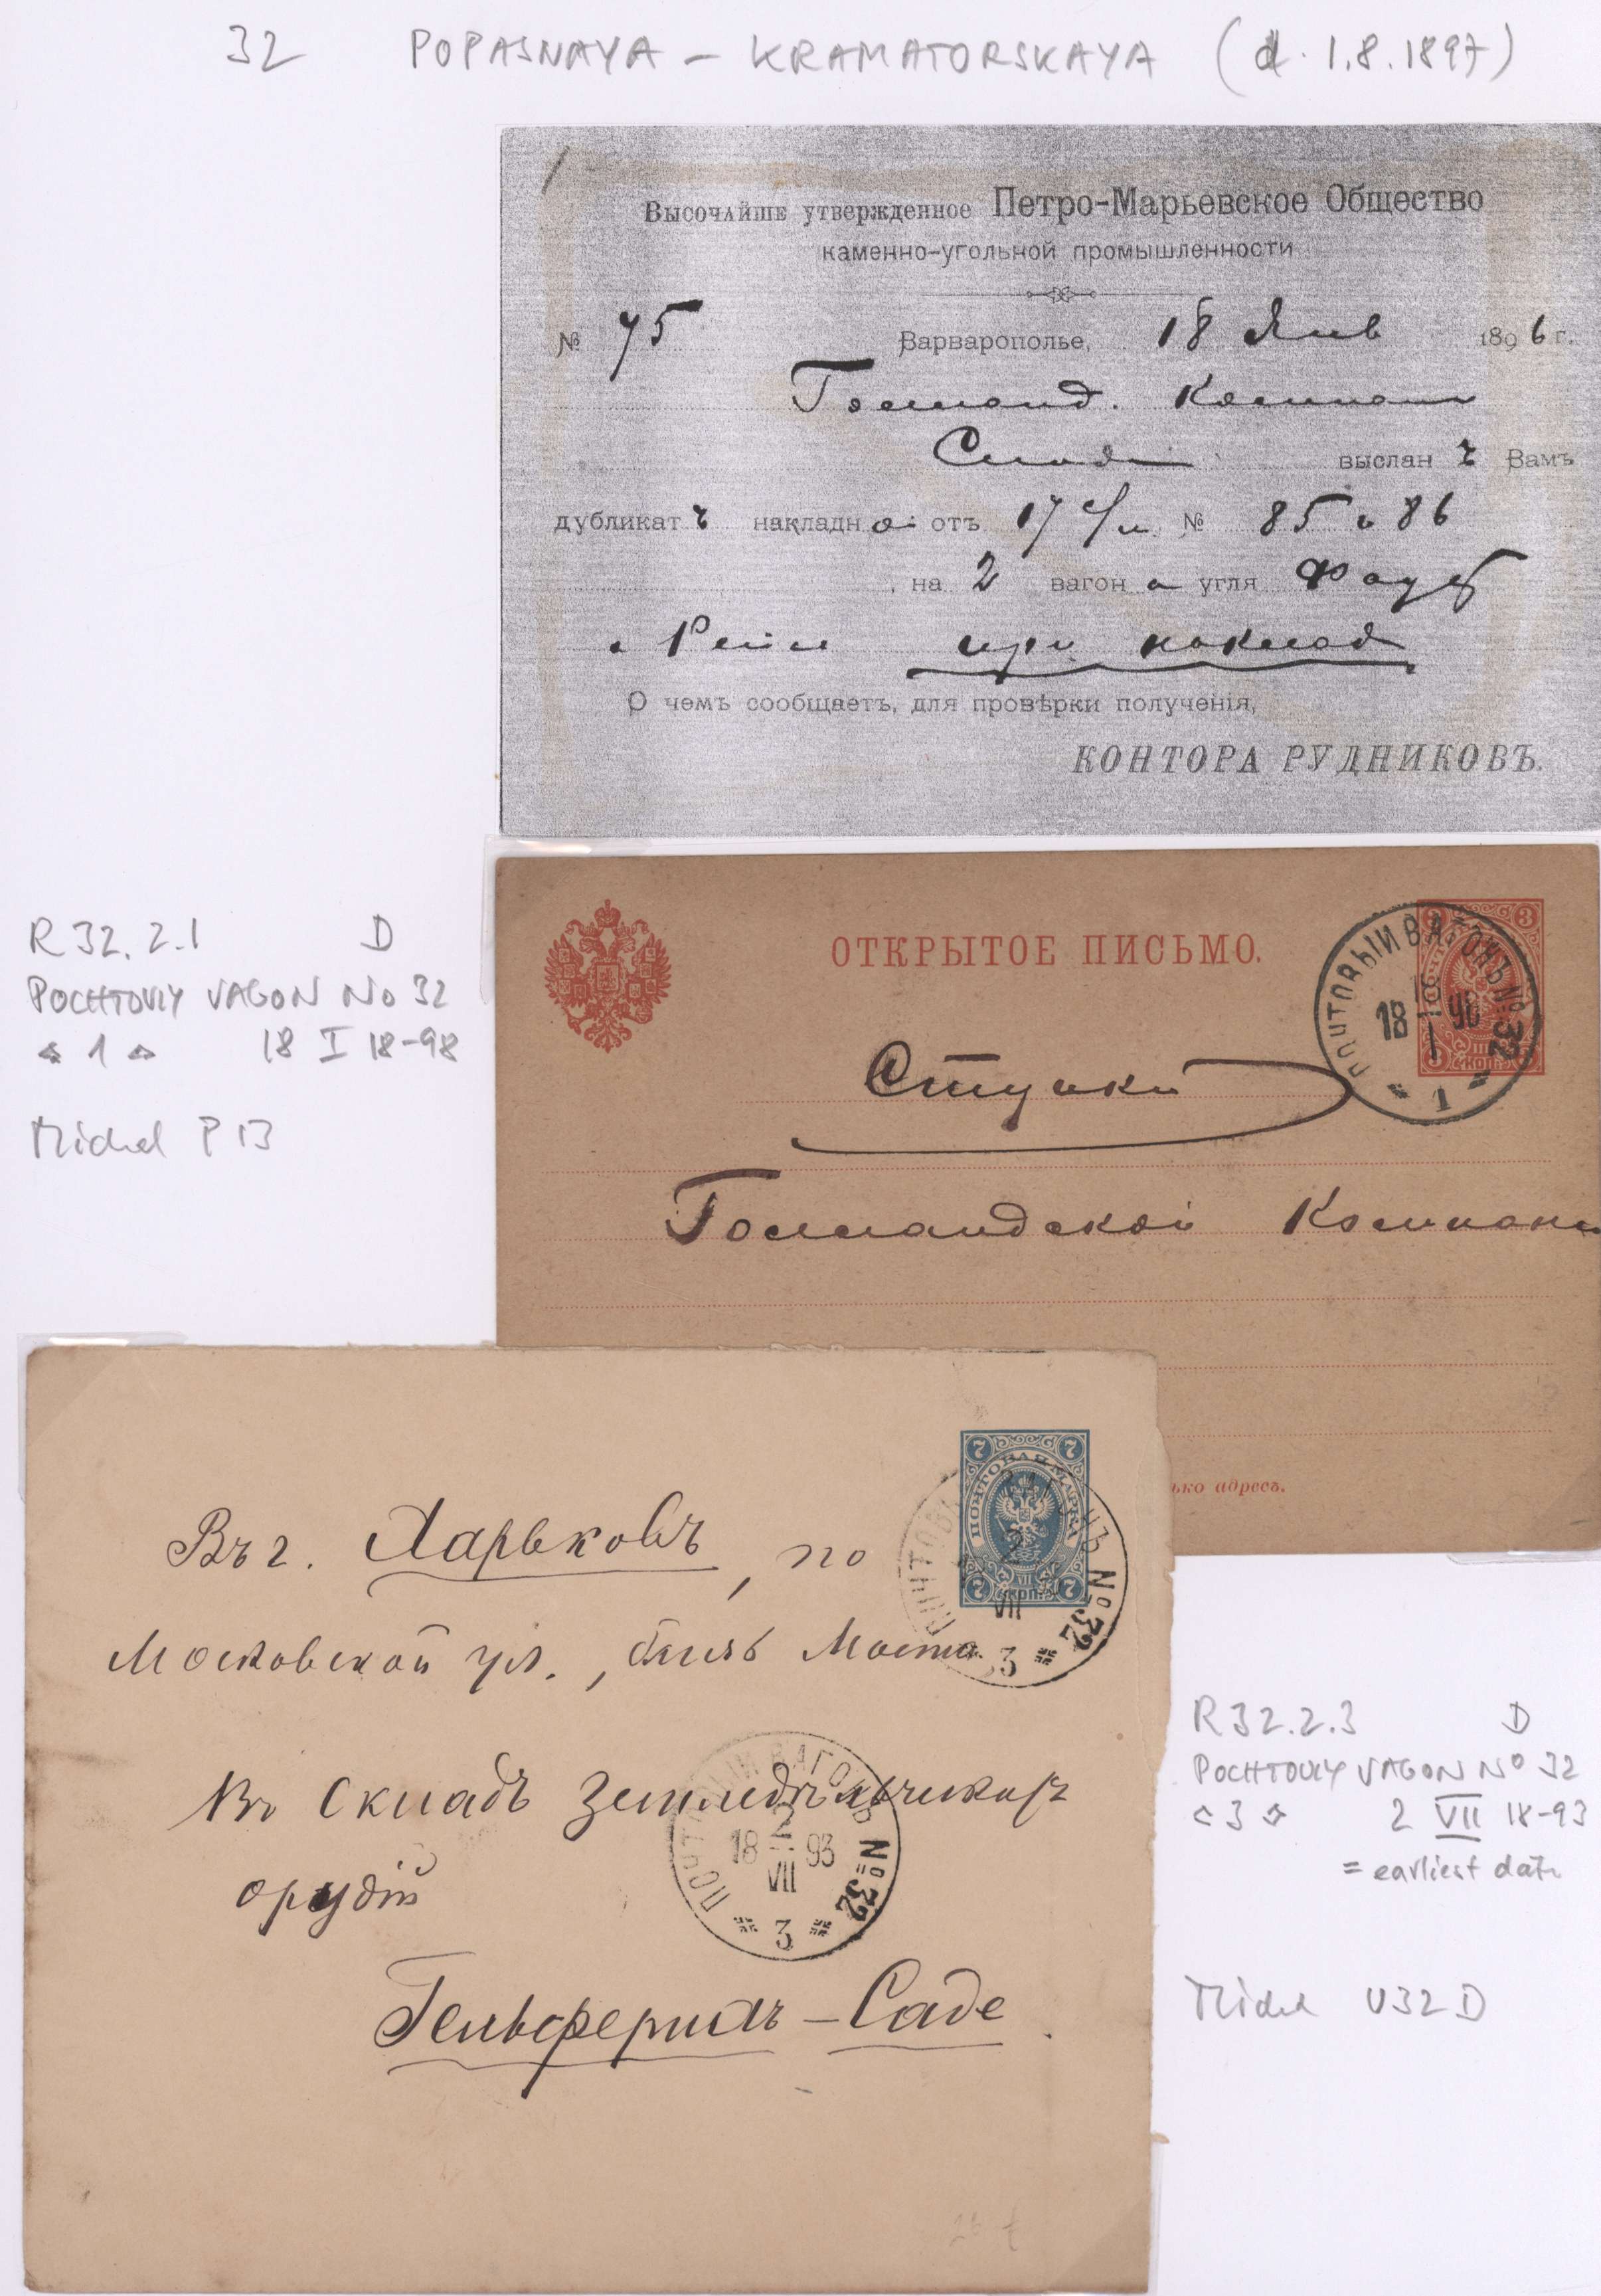 32 POPASNAYA – KRAMATORSKAYA (d. 1.8.1897)
Высочайше утвержденное Петро-Марьевское Общество
каменно-угольной промышленности
№ 75 Варварополье, 18 Янв 1896 г.
Голланд. Компан
выслан ъ Вамъ
дубликат ъ накладн о отъ 17 с/м № 85 и 86
, на 2 вагон а угля
при наклад
О чемъ сообщаетъ, для провѣрки полученія,
КОНТОРА РУДНИКОВЪ.
R 32.2.1 D
POCHTOVIY VAGON No 32
1 18 I 18-98
Michel P 13
ОТКРЫТОЕ ПИСЬМО.
3 3
ПОЧТОВЫЙ ВАГОНЪ № 32
18 18 96
I
1
Ступки
Голландской Компан
ько адресъ.
7 7
ПОЧТОВАЯ МАРКА
VII
7 КОП. 7
ПОЧТОВЫЙ ВАГОНЪ № 32
2
VII
3
Въ г. Харьковъ, по
Московской ул., близь Моста
Въ Складъ Земледѣльческихъ
орудій
Гельферихъ – Саде.
ПОЧТОВЫЙ ВАГОНЪ № 32
2
18 93
VII
3
R 32.2.3 D
POCHTOVIY VAGON No 32
3 2 VII 18-93
= earliest date
Michel U32 D